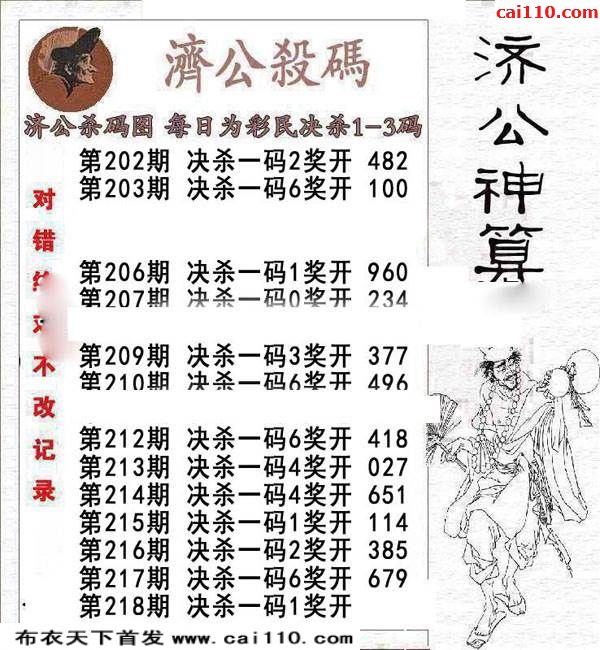 cai110.com
濟公殺碼
济公杀码图 每日为彩民决杀1-3码
第202期 决杀一码2奖开 482
第203期 决杀一码6奖开 100
第206期 决杀一码1奖开 960
第207期 决杀一码0奖开 234
第209期 决杀一码3奖开 377
第210期 决杀一码6奖开 496
第212期 决杀一码6奖开 418
第213期 决杀一码4奖开 027
第214期 决杀一码4奖开 651
第215期 决杀一码1奖开 114
第216期 决杀一码2奖开 385
第217期 决杀一码6奖开 679
第218期 决杀一码1奖开
对错
不改记录
济公神算
布衣天下首发 www.cai110.com